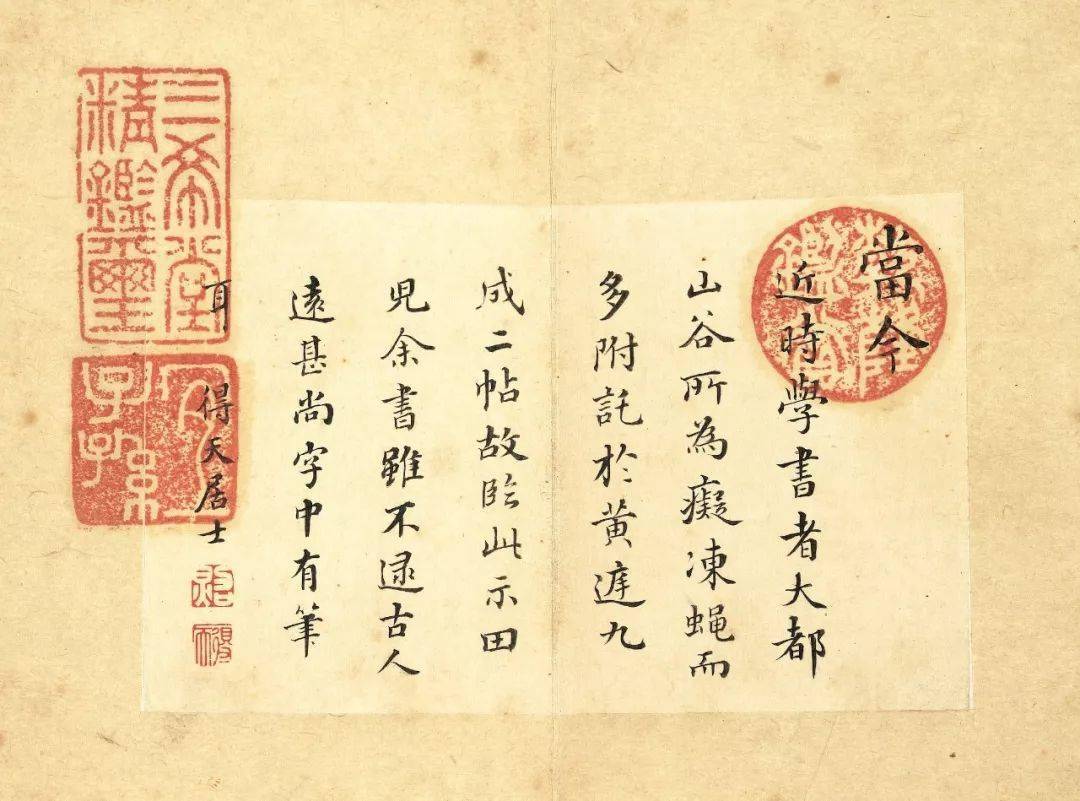 乾隆鑑賞
當今
近時學書者大都
山谷所為癡凍蠅而
多附託於黃庭九
成二帖故臨此示田
兒余書雖不逮古人
遠甚尚字中有筆
耳 得天居士
三希堂精鑑璽
宜子孫